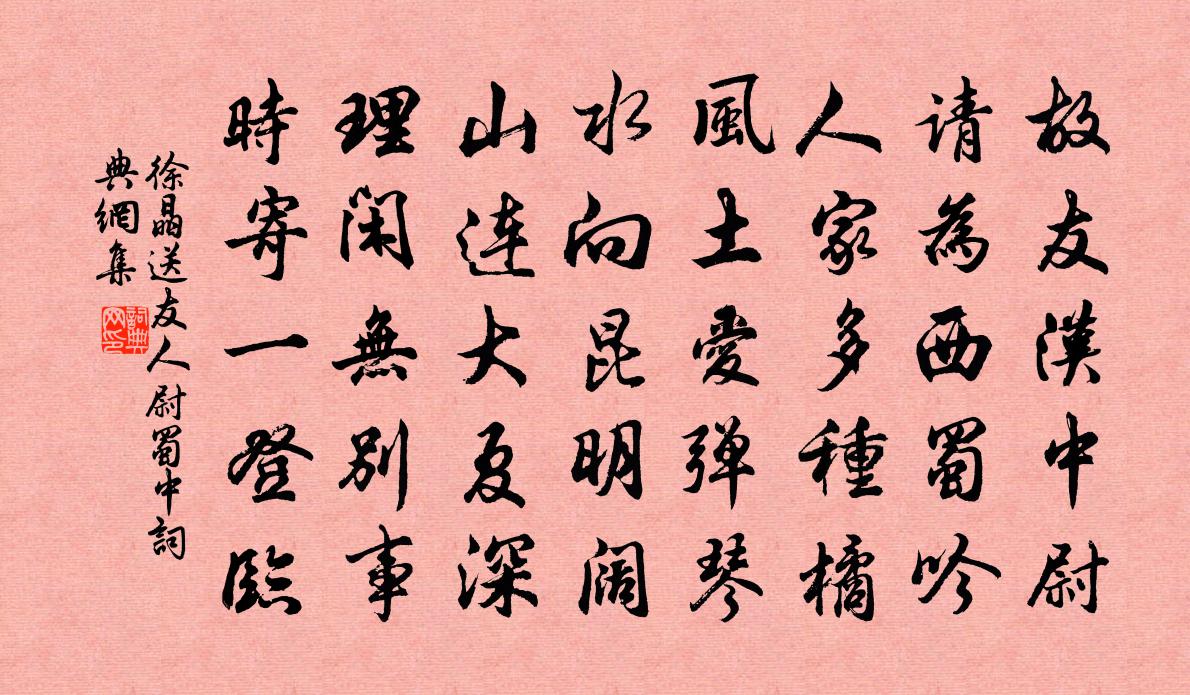 故友漢中尉
请為西蜀吟
人家多種橘
風土愛弹琴
水向昆明阔
山连大夏深
理闲無別事
時寄一登臨
徐晶送友人尉蜀中詞
典網集
詞典
网印